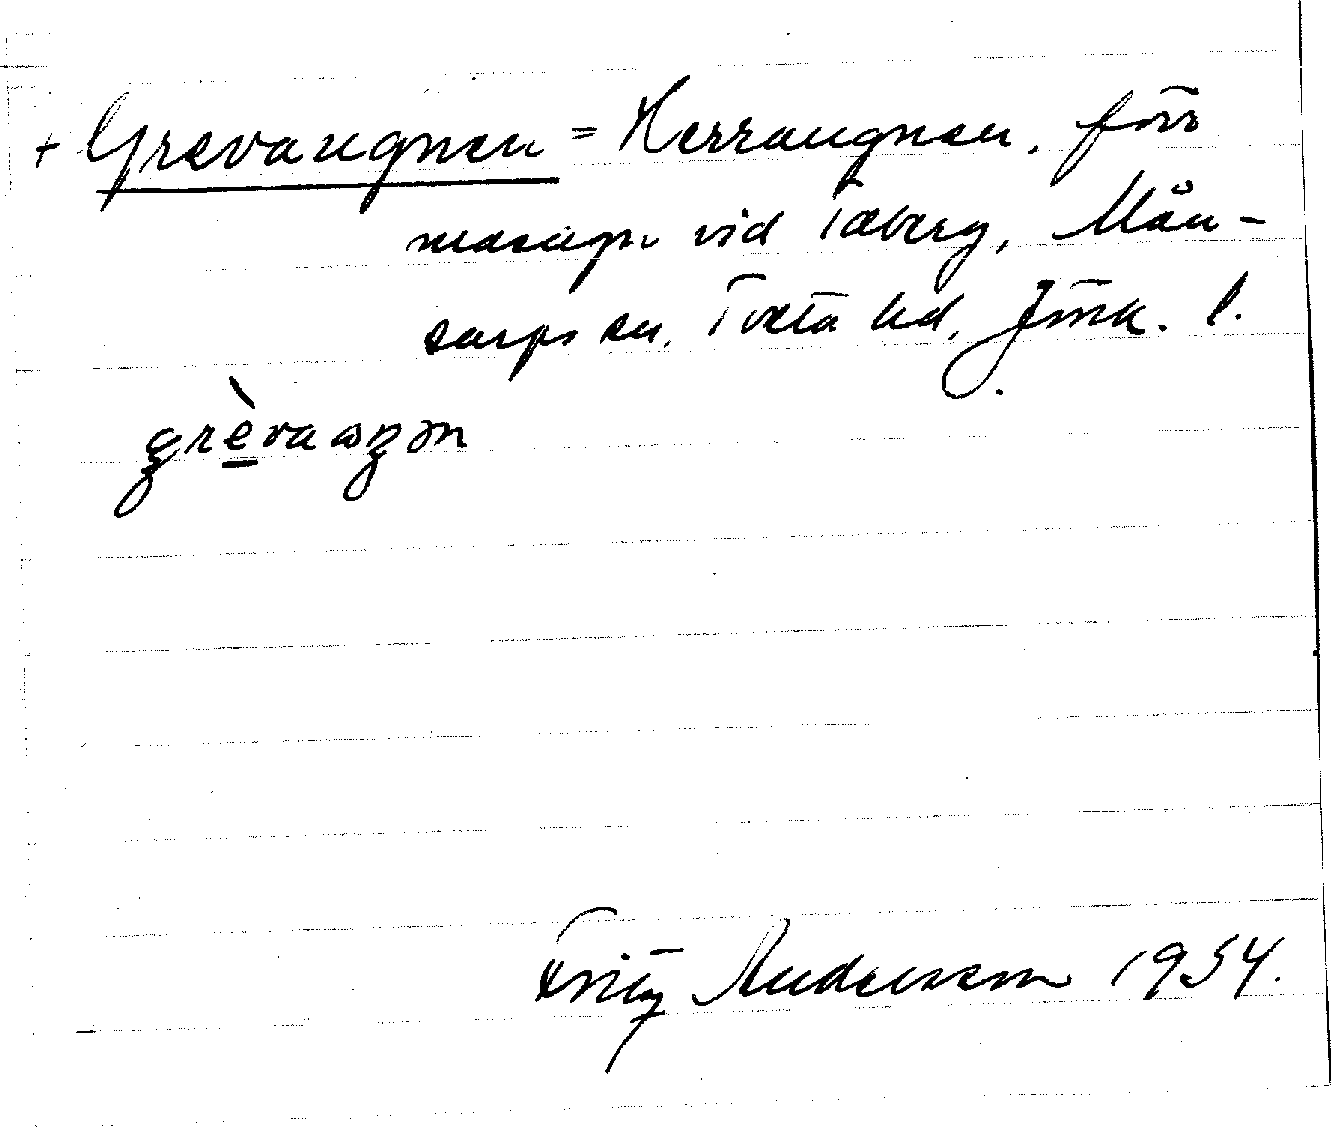 + Grevaugnen = Herraugnen, förr
masugn vid Taberg, Mån-
sarps sn, Tveta hd, Jönk. l.
Fritz Andersson 1954.